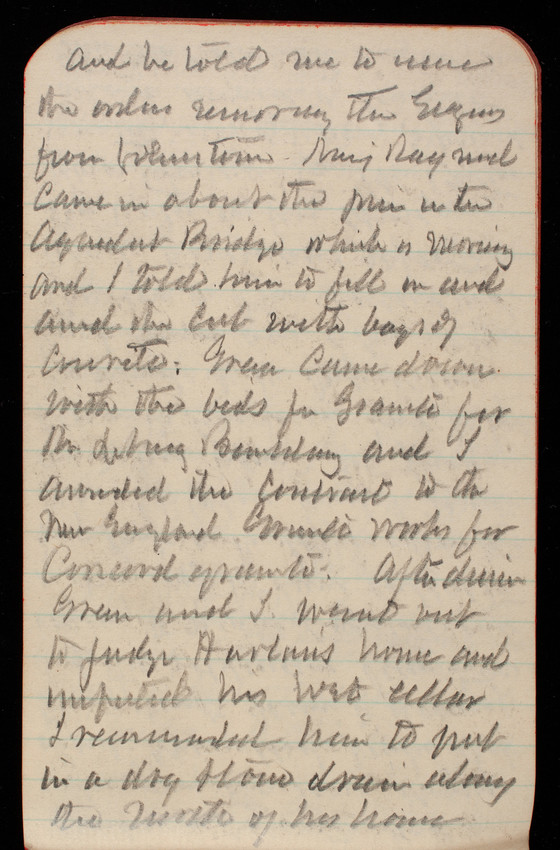 and he told me to issue
the order removing the Sequis
from  Maj Raymond
Came in about the pier in the
Aqueduct Bridge which is moving
and I told him to fill in and
around the Crib with bags of
Concrete. Green Came down
with the bids for Granite for
the Library Building and I
awarded the Contract to the
New England Granite Works for
Concord granite. After dinner
Green and I went out
to Judge Harlan's house and
inspected his wet cellar
I recommended him to put
in a dry stone drain along
the north of his house